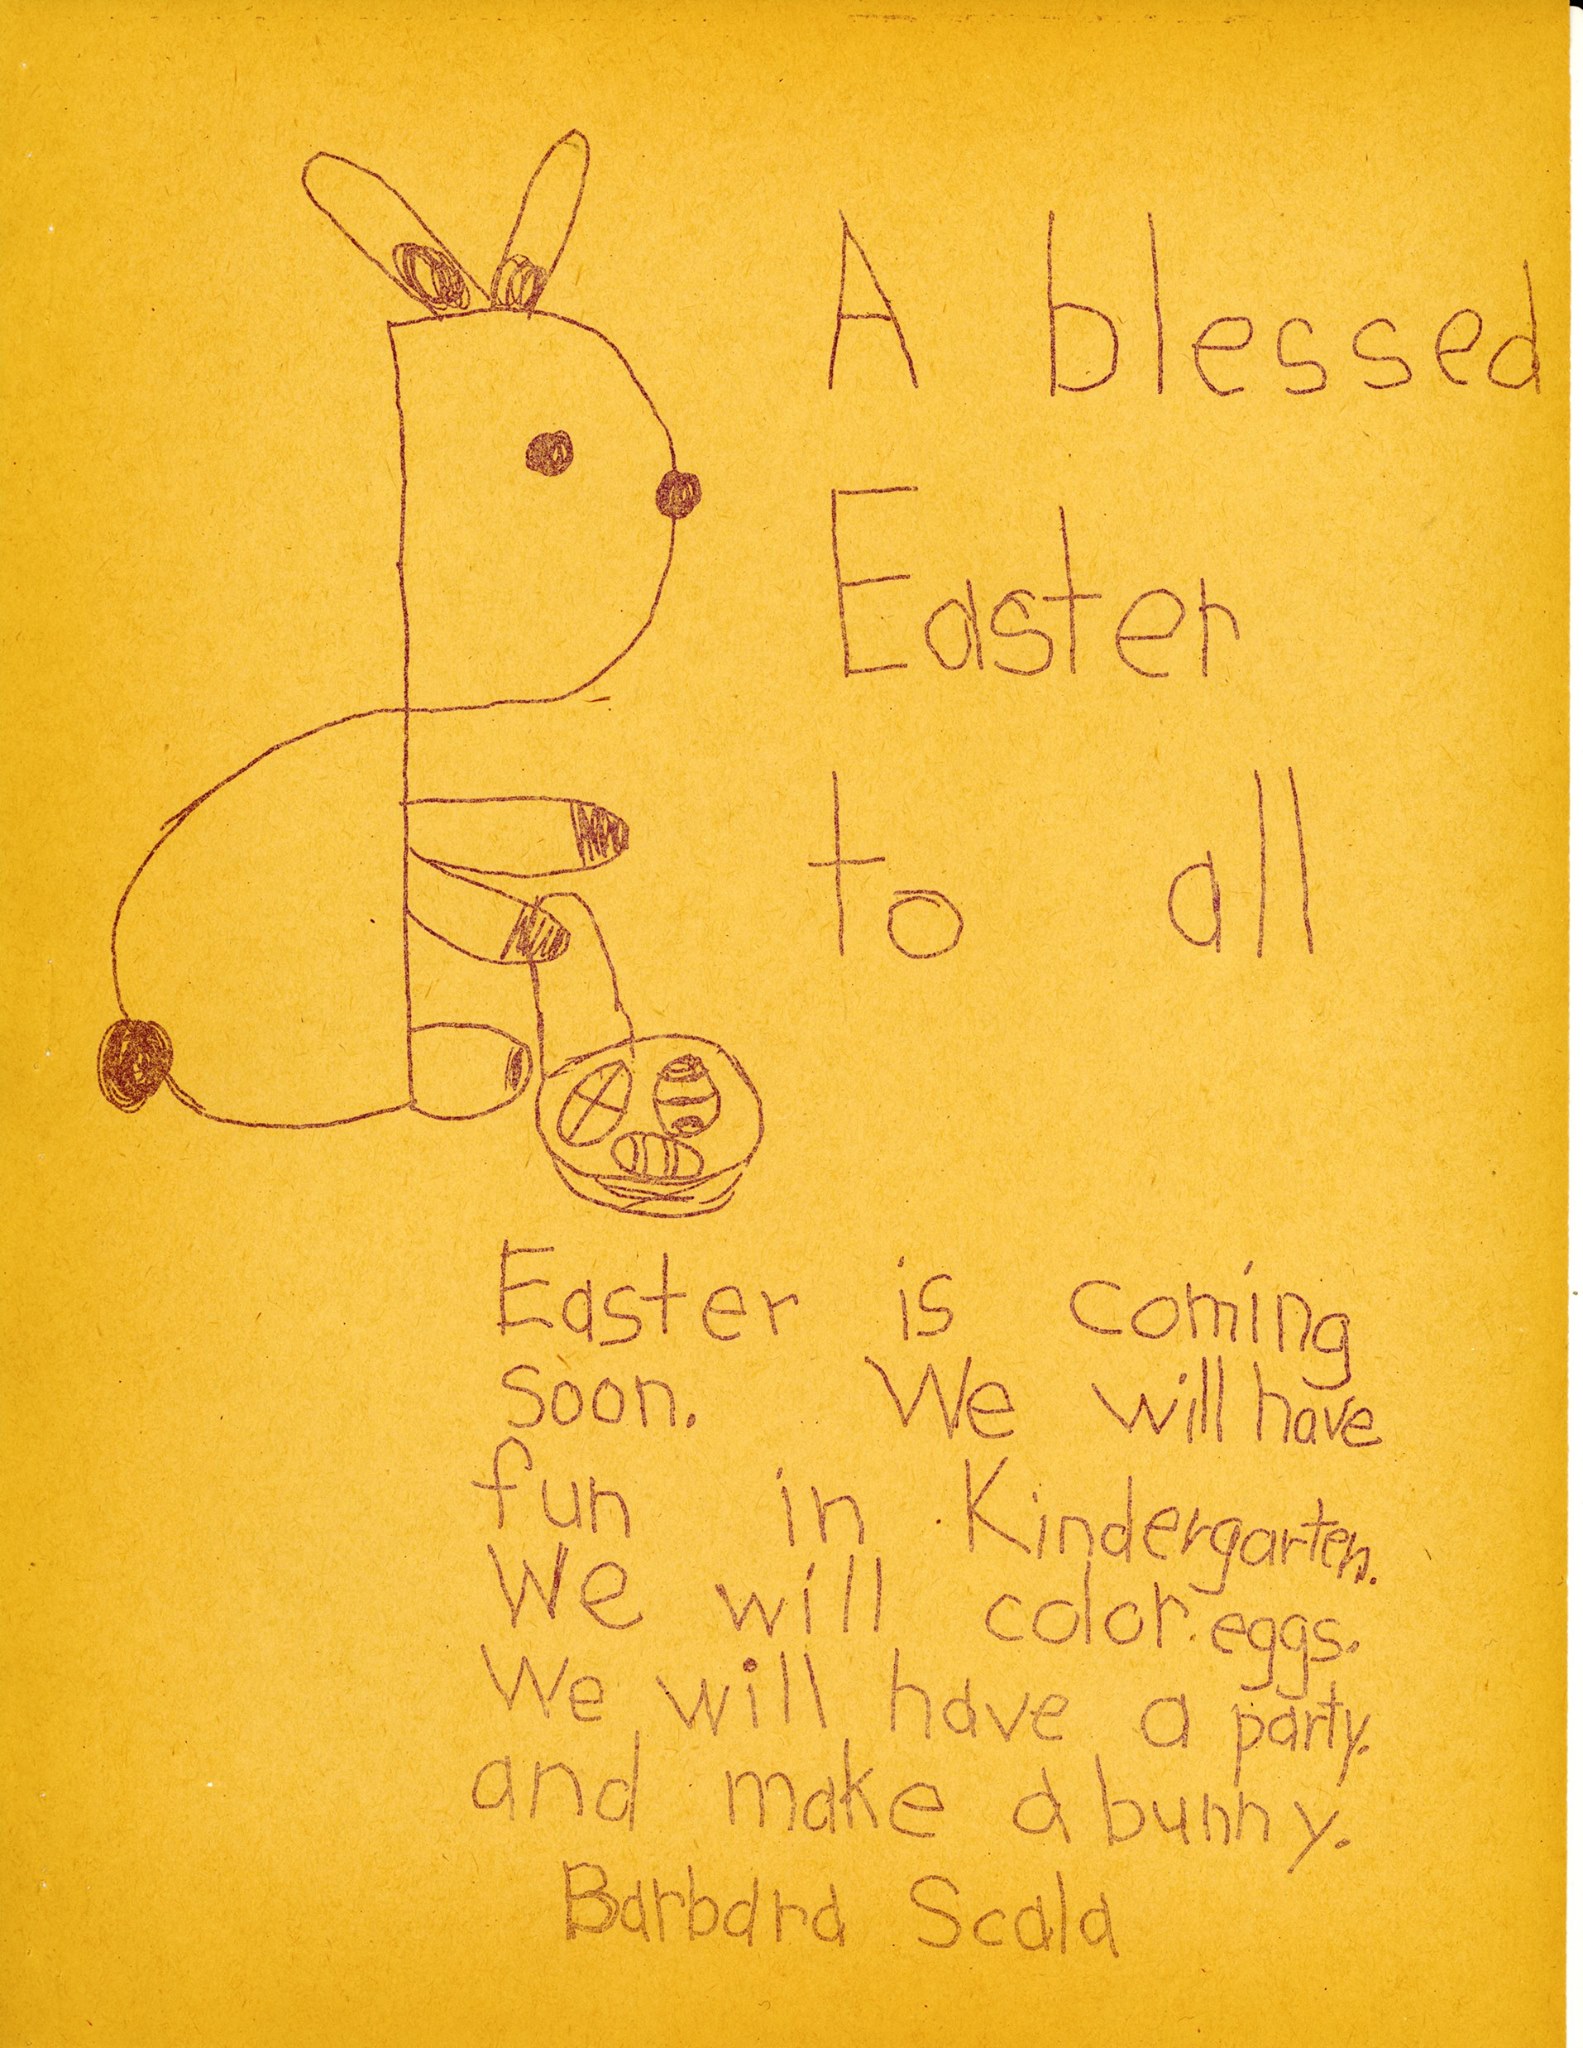 A blessed
Easter
to all
Easter is coming
soon. We will have
fun in Kindergarten.
We will color eggs.
We will have a party.
and make a bunny.
Barbara Scala